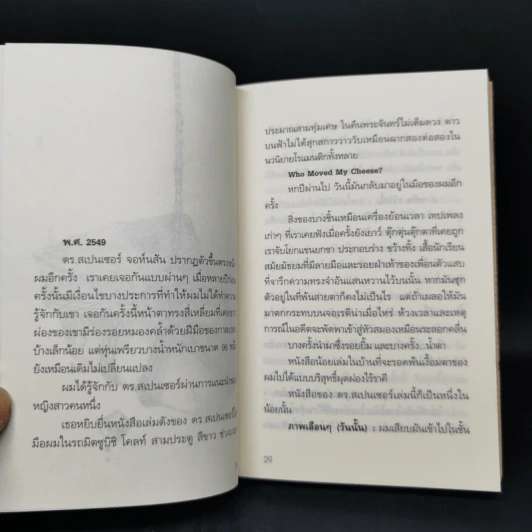 พ.ศ. 2549
ดร.สเปนเซอร์ จอห์นสัน ปรากฏตัวขึ้นตรงหน้า
ผมอีกครั้ง เราเคยเจอกันแบบผ่านๆ เมื่อหลายปีก่อน
ครั้งนั้นมีเงื่อนไขบางประการที่ทำให้ผมไม่ได้ทำความ
รู้จักกับเขา เจอกันครั้งนี้หน้าตาทรงสี่เหลี่ยมที่เคย
ผ่องของเขามีร่องรอยหมองคล้ำด้วยฝีมือของกาลเวลา
บ้างเล็กน้อย แต่หุ่นเพรียวบางน้ำหนักเบาขนาด 96 หน้า
ยังเหมือนเดิมไม่เปลี่ยนแปลง
ผมได้รู้จักกับ ดร.สเปนเซอร์ผ่านการแนะนำของ
หญิงสาวคนหนึ่ง
เธอหยิบยื่นหนังสือเล่มดังของ ดร.สเปนเซอร์
มือผมในรถมิตซูบิชิ โคลท์ สามประตู สีขาว ช่วง
ประมาณสามทุ่มเศษ ในคืนพระจันทร์ไม่เต็มดวง ดาว
บนฟ้าไม่ได้สุกสกาววาววับเหมือนฉากสองต่อสองใน
นวนิยายโรแมนติกทั้งหลาย
Who Moved My Cheese?
หกปีผ่านไป วันนี้มันกลับมาอยู่ในมือของผมอีก
ครั้ง
สิ่งของบางชิ้นเหมือนเครื่องย้อนเวลา เทปเพลง
เก่าๆ ที่เราเคยฟังเมื่อครั้งยังเยาว์ ตุ๊กตุ่นตุ๊กตาที่เคยถูก
เราจับโยกแขนยกขา ประกอบร่าง ขว้างทิ้ง เสื้อนักเรียน
สมัยมัธยมที่มีลายมือและรอยฝ่าเท้าของเพื่อนตัวแสบ
ที่จารึกความทรงจำอันแสนหวานไว้บนนั้น หากมันซุก
ตัวอยู่ในที่พ้นสายตาก็คงไม่เป็นไร แต่ถ้าเผลอให้มัน
มาตกกระทบบนจอเรตินาเมื่อไหร่ ห้วงเวลาและเหตุ
การณ์ในอดีตจะพัดพาเข้าสู่หัวสมองเหมือนระลอกคลื่น
บางครั้งนำมาซึ่งรอยยิ้ม และบางครั้ง...น้ำตา
หนังสือน้อยเล่มในบ้านที่จะรอดพ้นเงื้อมตาของ
ผมไปได้แบบบริสุทธิ์ผุดผ่องไร้ราคี
หนังสือของ ดร.สเปนเซอร์เล่มนี้ก็เป็นหนึ่งใน
น้อยนั้น
ภาพเลือนๆ (วันนั้น) : ผมเสียบมันเข้าไปในชั้น
29